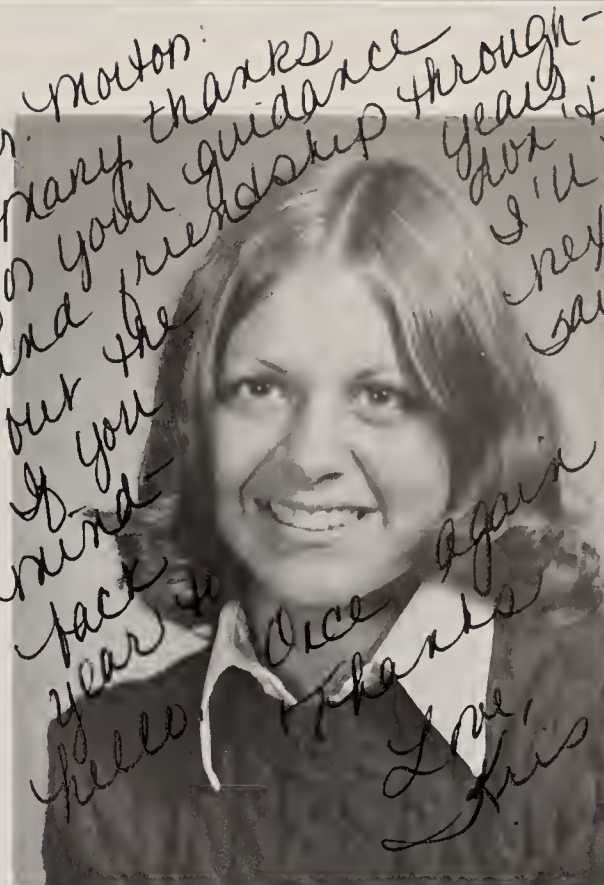 r. Morton:
many thanks
or your guidance
and friendship through-
out the years.
If you don't
mind I'll
back nex
year to say
hello.
Once again
Thanks
Love,
Kris